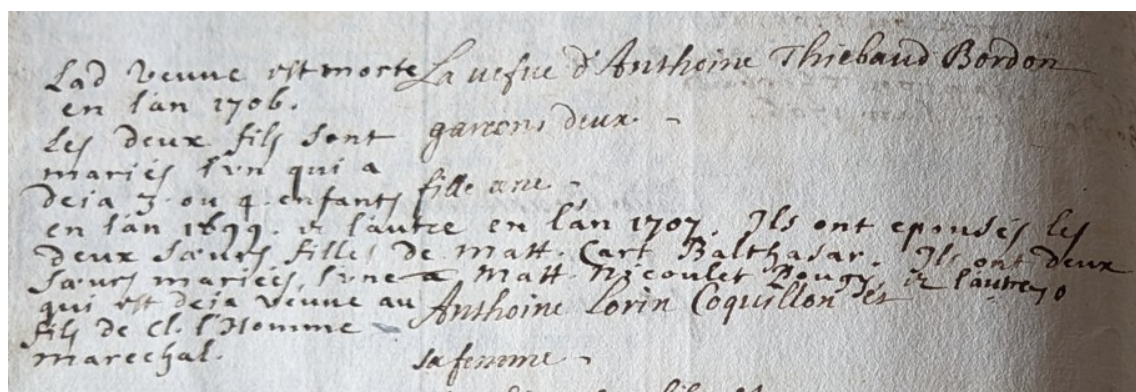 Lad veuve est morte La vefve d'Anthoine Thiebaud Bordon
en l'an 1706.
Les deux fils sont garcons deux. -
mariés l'vn qui a
deia 3. ou 4. enfants fille une -
en l'an 1699. & l'autre en l'an 1707. Ils ont epousés les
deux sœurs filles de Matt. Cart Balthasar. Ils ont deux
sœurs mariées, l'vne a Matt. Nicoulet Rougy, & l'autre
qui est deja veuve au Anthoine Lorin Coquillon et
fils de Cl. l'Homme
marechal. sa femme -